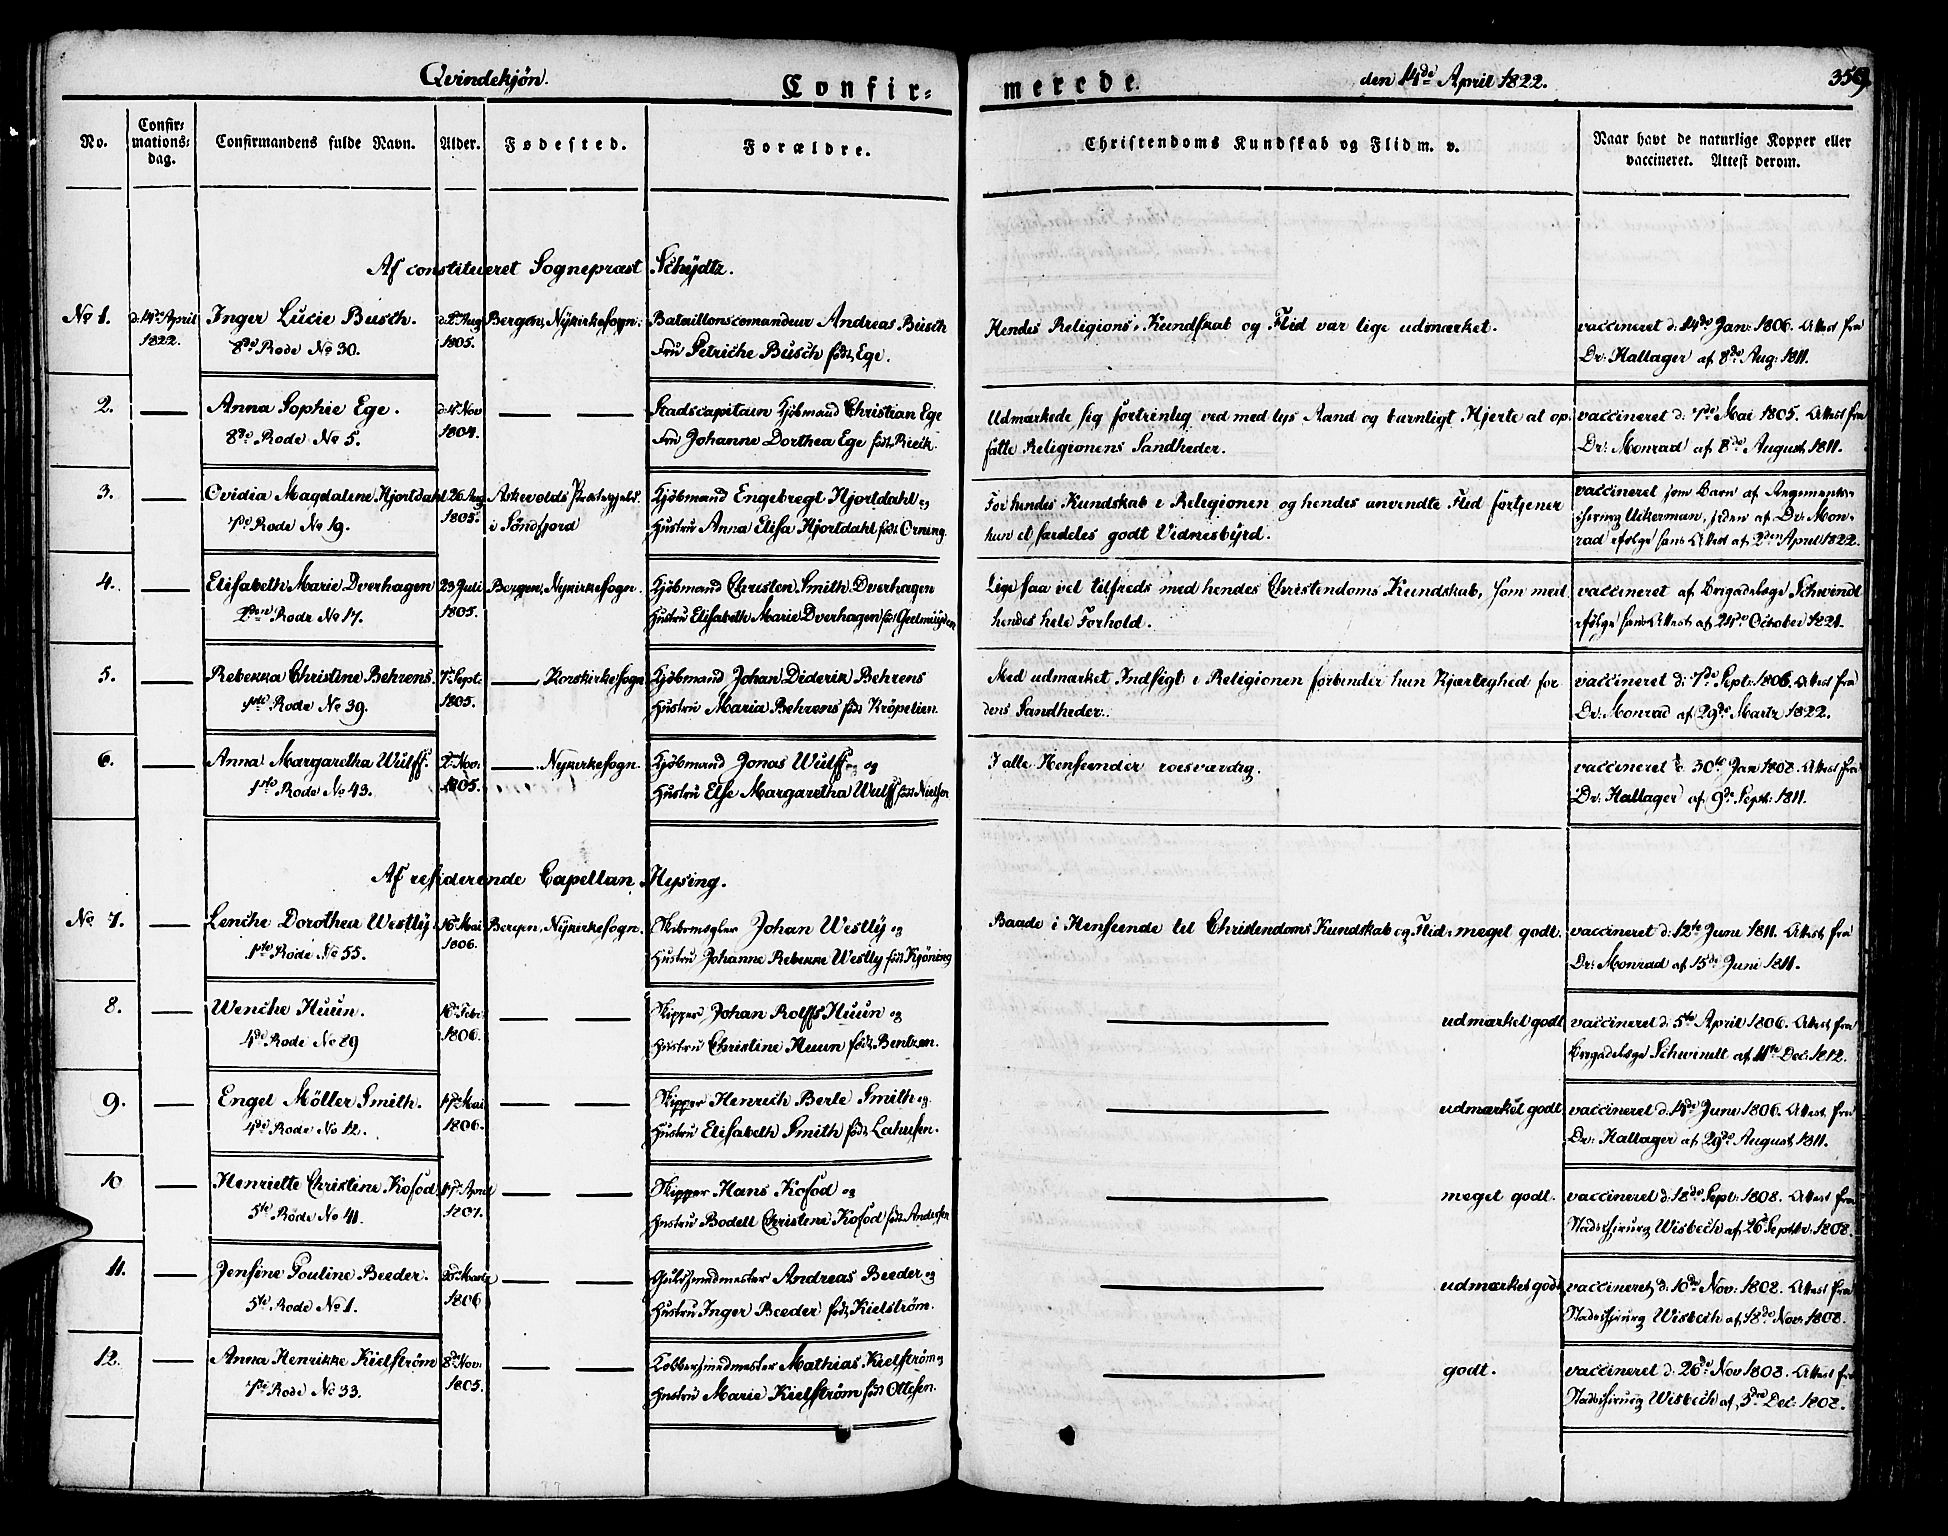 Qvindekjøn.
Confir=
merede.
den 14de April 1822.
359.
No.
Confir=
mations=
dag.
Confirmandens fulde Navn.
Alder.
Fødested.
Forældre.
Christendoms Kundskab og Flid m. v.
Naar havt de naturlige Kopper eller
vaccineret. Attest derom.
Af constitueret Sognepræst Schydtz.
No 1.
d: 14de April
1822.
Inger Lucie Busch.
8de Rode No 30.
Aug
1805.
Bergen, Nykirkesogn.
Bataillonscomandeur Andreas Busch
Fru Petriche Busch født Ege.
Hendes Religions Kundskab og Flid var lige udmærket.
vaccineret d: 14de Jan: 1806. Attest fra
Dr: Hallager af 8de Aug: 1811.
2.
Anna Sophie Ege.
8de Rode No 5.
Nov
1804.
Stadscapitain Kjøbmand Christian Ege
Fru Johanne Dorthea Ege født
Udmærkede sig fortrinlig ved med lys Aand og barnligt Hjerte at op:
fatte Religionens Sandheder.
vaccineret d: 7de Mai 1805. Attest fra
Dr: Monrad af 8de August 1811.
3.
Ovidia Magdalene Hjortdahl
7de Rode No 19.
26 Aug
1805.
Askevolds Præstegjeld.
i Søndfjord
Kjøbmand Engebregt Hjortdahl og
Hustru Anna Elisa Hjortdahl født Orning.
For hendes Kundskab i Religionen og hendes anvendte Flid fortjener
hun et særdeles godt Vidnesbyrd.
vaccineret som Barn af Regiments=
chirurg Uckerman, siden af Dr: Mon=
rad ifølge hans Attest af 2den April 1822.
4.
Elisabeth Marie Dverhagen
2den Rode No 17.
23 Juli
1805.
Bergen, Nykirkesogn.
Kjøbmand Christen Smith Dverhagen
Hustru Elisabeth Marie Dverhagen født Geelmuyden
Lige saa vel tilfreds med hendes Christendoms Kundskab, som med
hendes hele Forhold.
vaccineret af Brigadelæge Schwindt
ifølge hans Attest af 24de October 1821.
5.
Rebekka Christine Behrens
1ste Rode No 39.
7de Sept:
1805.
Korskirkesogn
Kjøbmand Johan Diderik Behrens
Hustru Maria Behrens født Kröpelien.
Med udmærket Indsigt i Religionen forbinder hun Kjærlighed for
dens Sandheder.
vaccineret d: 7de Sept: 1806. Attest fra
Dr: Monrad af 29de Martz 1822.
6.
Anna Margaretha Wulff.
1ste Rode No 43.
2 Nov:
1805.
Nykirkesogn.
Kjøbmand Jonas Wulff og
Hustru Else Margaretha Wulff født Nielsen
I alle Henseender roesværdig.
vaccineret d 30te Jan 1808. Attest fra
Dr: Hallager af 9de Sept: 1811.
Af residerende Capellan Hysing.
No 7.
Lenche Dorothea Westly.
1ste Rode No 55.
16 Mai
1806.
Bergen, Nykirkesogn.
Johan Westly og
Hustru Johanne Rebekke Westly født Kjöning
Baade i Henseende til Christendoms Kundskab og Flid: meget godt.
vaccineret d: 12te June 1811. Attest fra
Dr: Monrad af 15de Juni 1811.
8.
Wenche Huun.
4de Rode No 29
16 Febr
1806.
Skipper Johan Rolffs Huun og
Hustru Christine Huun født Bentzen.
udmærket godt
vaccineret d: 5te April 1806. Attest fra
Brigadelæge Schwindt af 11te Dec: 1812.
9.
Engel Möller Smith.
4de Rode No 12.
17 Mai
1806.
Skipper Henrich Berle Smith og
Hustru Elisabeth Smith født Lahusen.
udmærket godt
vaccineret d: 14de June 1806. Attest fra
Dr: Hallager af 29de August 1811.
10
Henriette Christine Kofod
5te Rode No 41.
17 April
1807.
Skipper Hans Kofod og
Hustru Bodell Christene Kofod født Andersen
meget godt.
vaccineret d: 18de Sept: 1808. Attest fra
Stadschirurg Wisbech af 26 Septbr. 1808.
11.
Jensine Pouline Beeder.
5te Rode No 1.
Martz
1806
Guldsmedmester Andreas Beeder og
Hustru Inger Beeder født Kielström.
udmærket godt
vaccineret d: 10de Nov: 1808. Attest fra
Stadschirurg Wisbech af 18de Nov: 1808.
12.
Anna Henrikke Kielström
7de Rode No 33.
8 Nov:
1805.
Kobbersmedmester Mathias Kielström og
Hustru Marie Kielström født Ottesen.
godt.
vaccineret d. 26de Nov 1808. Attest fra
Stadschirurg Wisbech af 3die Dec: 1808.